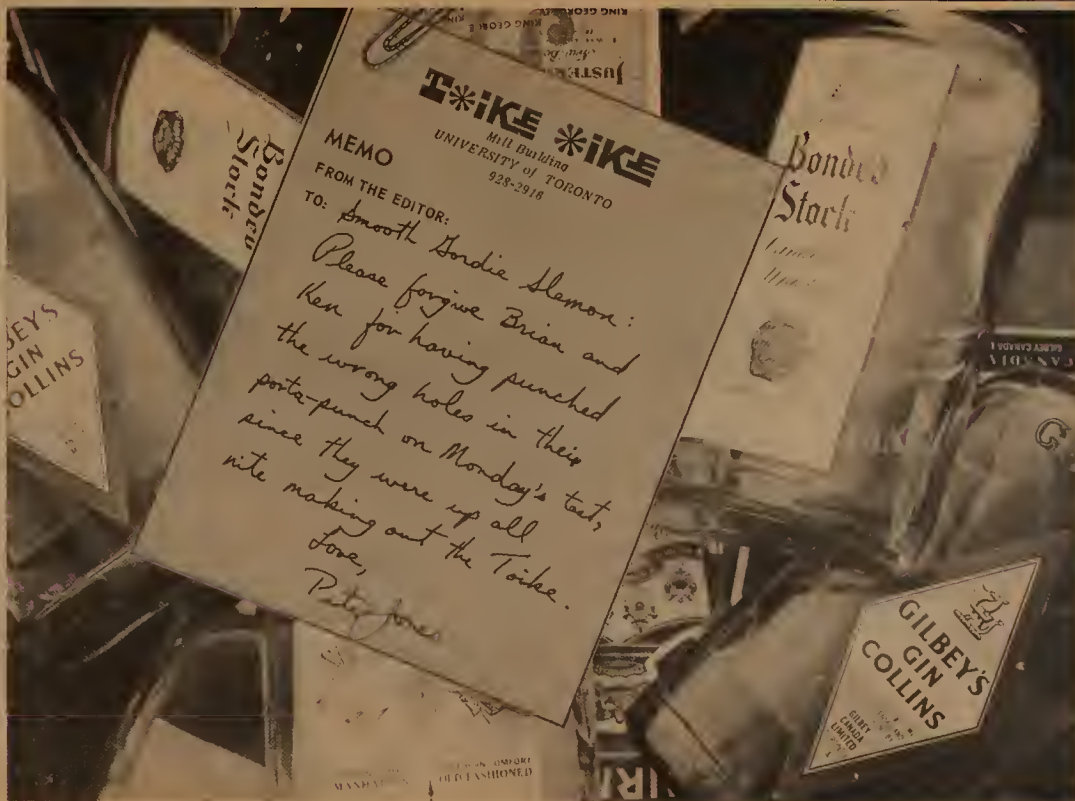 KING GEORGE
JUSTER
Bonded
Stock
T*iKE *iKE
Mill Building
UNIVERSITY of TORONTO
928-2916
MEMO
FROM THE EDITOR:
TO: Smooth Gordie Slemon:
Please forgive Brian and
Ken for having punched
the wrong holes in their
porta-punch on Monday's test,
since they were up all
nite making out the Toike.
Love,
Pete Jones
Bonded
Stock
GIN
COLLINS
GILBEY CANADA
G
GILBEY'S
GIN
COLLINS
GILBEY
CANADA
LIMITED
MANHATTAN
COMFORT
OLD FASHIONED